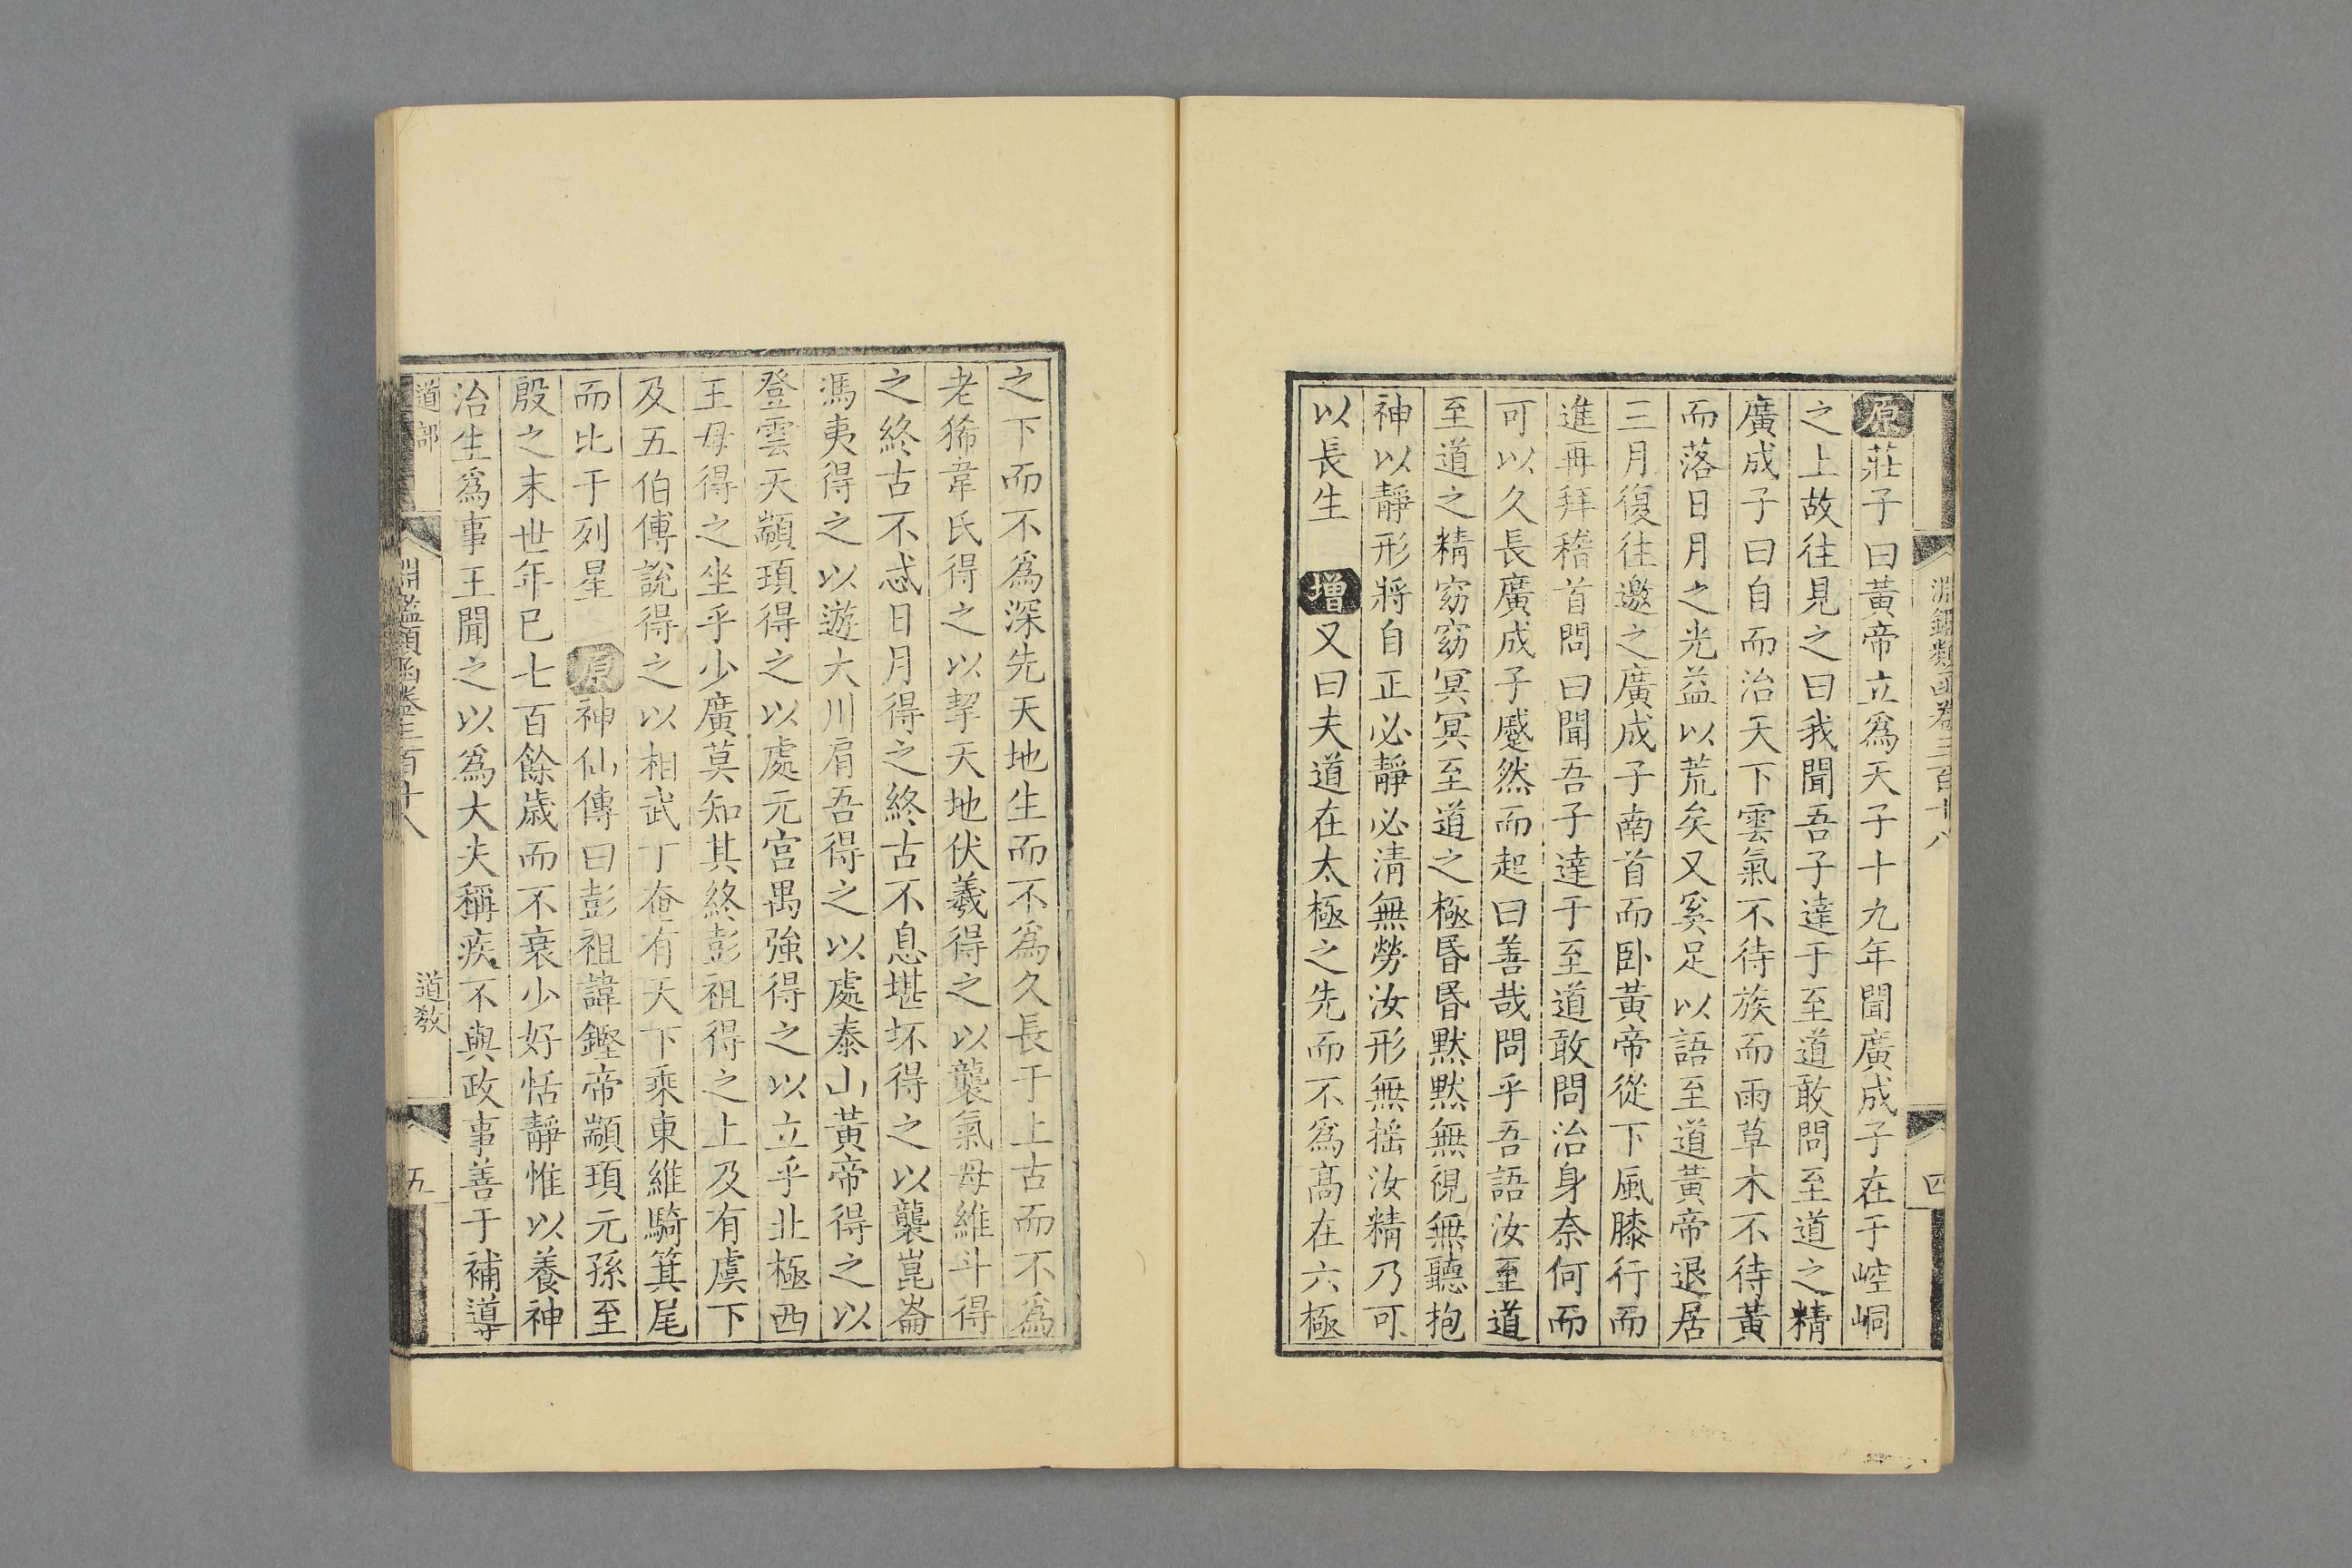 淵鑑類函卷三百十八
四
原莊子曰黃帝立爲天子十九年聞廣成子在于崆峒
之上故往見之曰我聞吾子達于至道敢問至道之精
廣成子曰自而治天下雲氣不待族而雨草木不待黃
而落日月之光益以荒矣又奚足以語至道黃帝退居
三月復往邀之廣成子南首而卧黃帝從下風膝行而
進再拜稽首問曰聞吾子達于至道敢問治身奈何而
可以久長廣成子蹙然而起曰善哉問乎吾語汝至道
至道之精窈窈冥冥至道之極昬昬默默無視無聽抱
神以靜形將自正必靜必清無勞汝形無搖汝精乃可
以長生 增又曰夫道在太極之先而不爲高在六極
之下而不爲深先天地生而不爲久長于上古而不爲
老狶韋氏得之以挈天地伏羲得之以襲氣母維斗得
之終古不忒日月得之終古不息堪坏得之以襲崑崙
馮夷得之以遊大川肩吾得之以處泰山黃帝得之以
登雲天顓頊得之以處元宫禺強得之以立乎北極西
王母得之坐乎少廣莫知其終彭祖得之上及有虞下
及五伯傅說得之以相武丁奄有天下乘東維騎箕尾
而比于列星 原神仙傳曰彭祖諱鏗帝顓頊元孫至
殷之末世年已七百餘歲而不衰少好恬靜惟以養神
治生爲事王聞之以爲大夫稱疾不與政事善于補導
道部
淵鑑類函卷三百十八
道敎
五